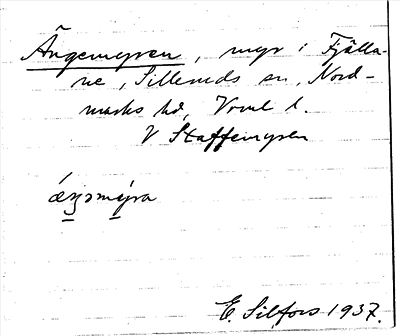 Ängemyren, myr i Fjälla-
ne, Silleruds sn, Nord-
marks hd, Vrml l.
V Staffemyren
ǽŋəmýra
E. Silfors 1937.